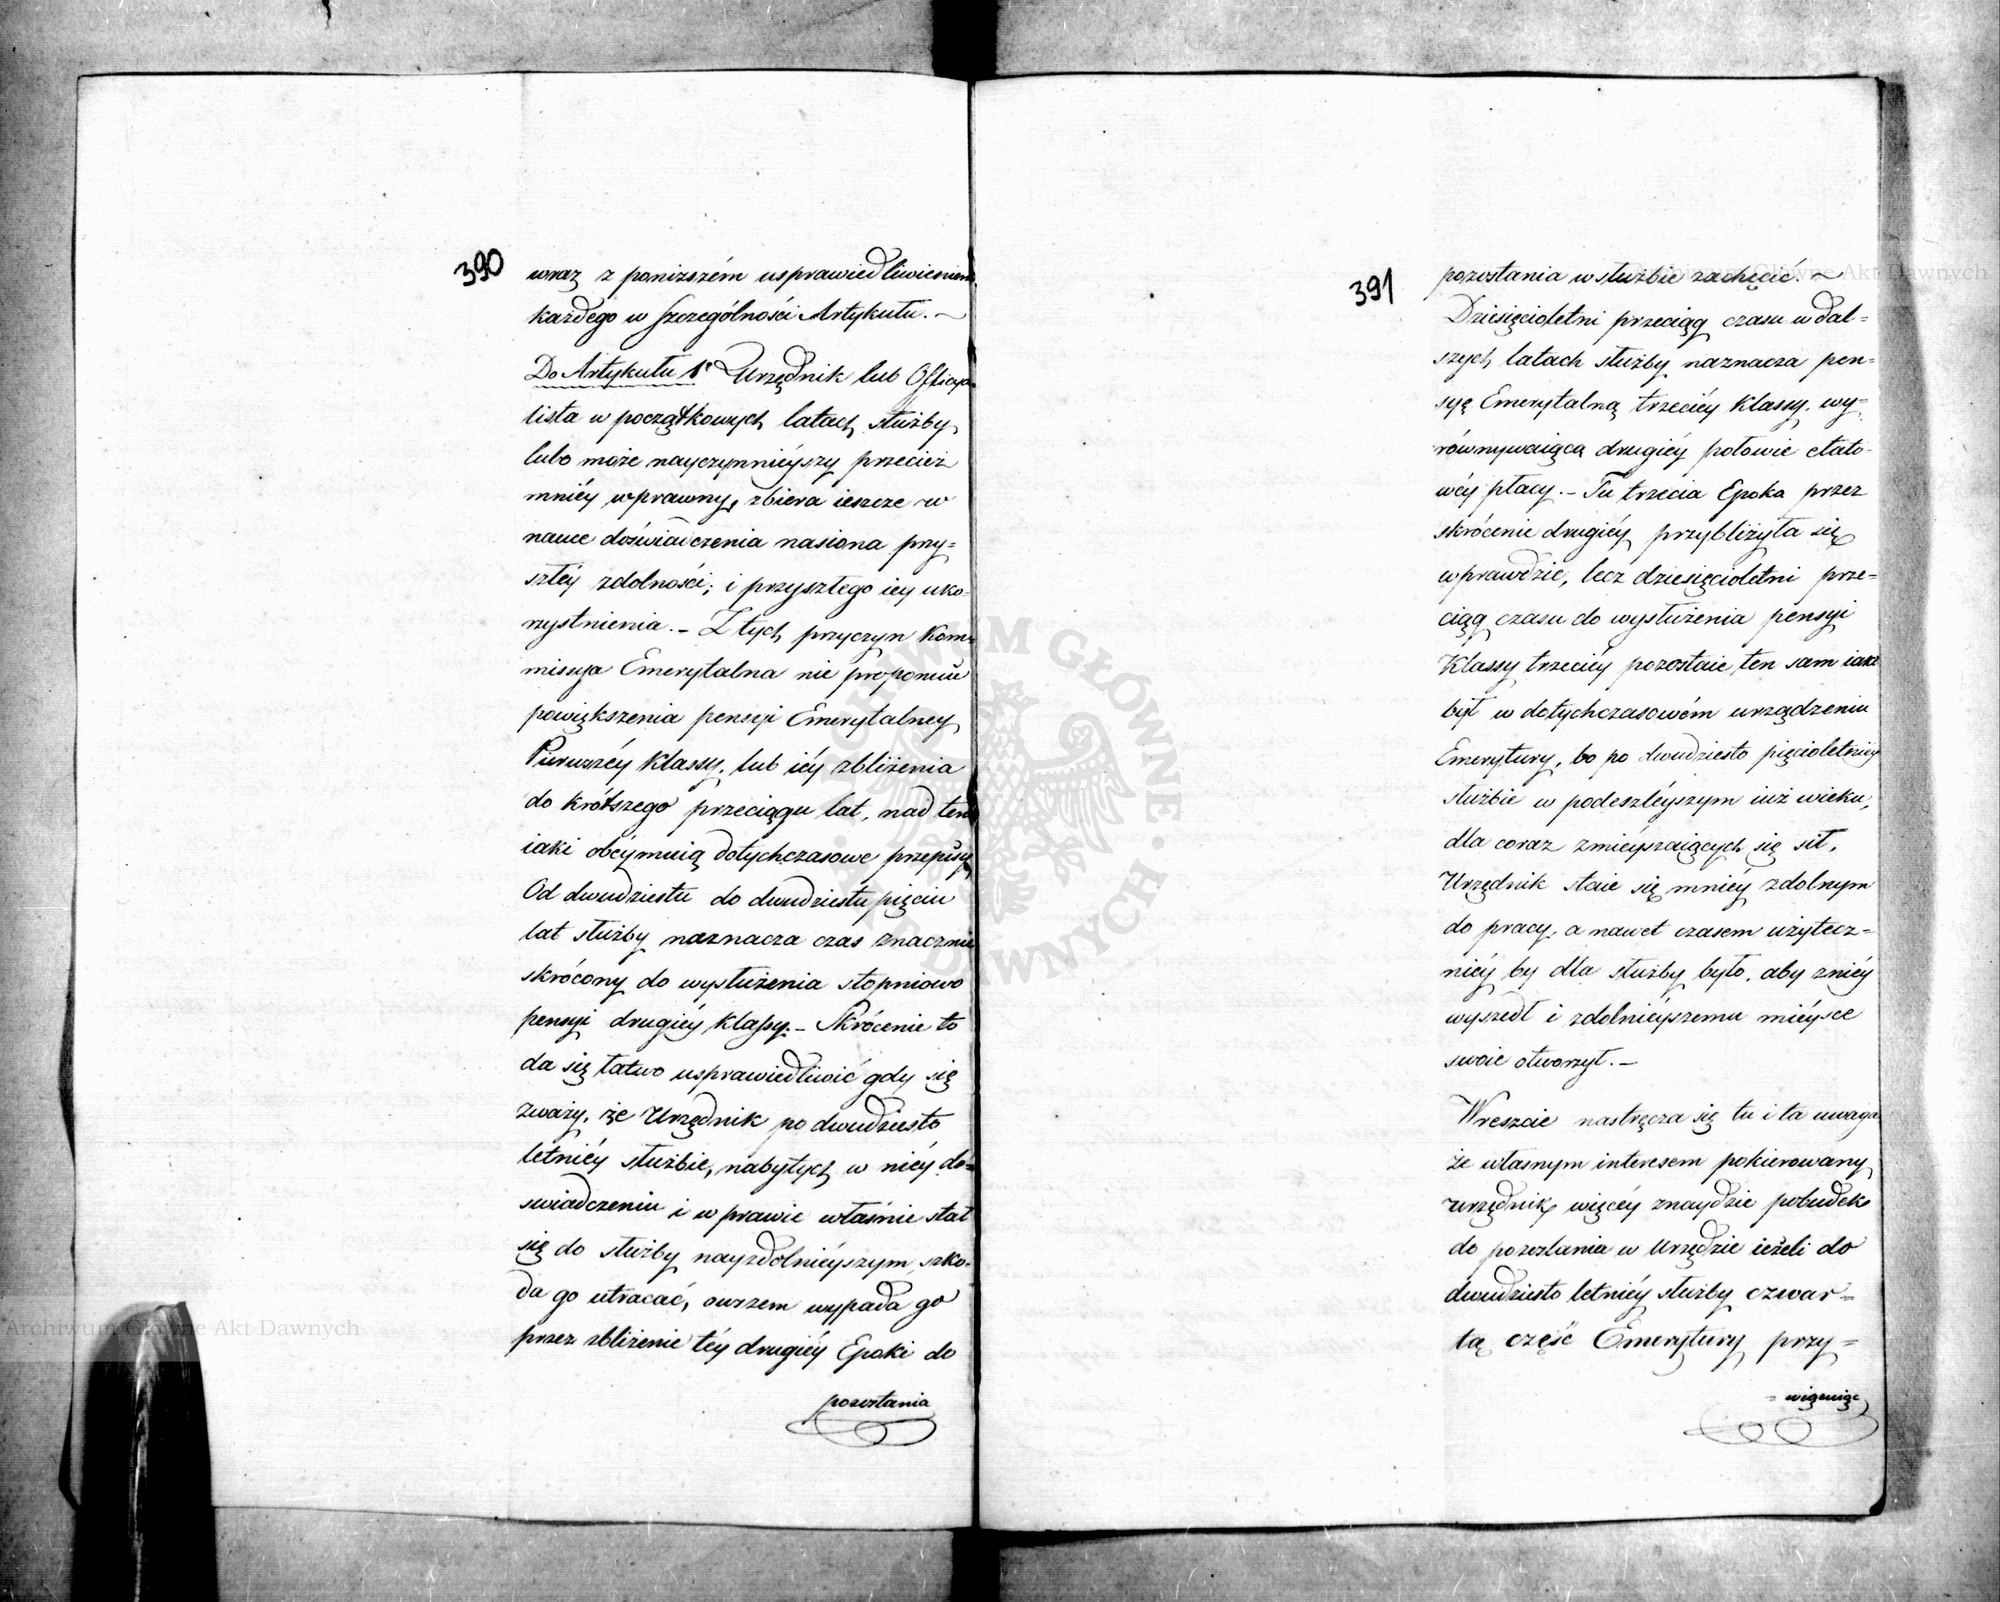 390
wraz z poniższém usprawiedliwieniem
każdego w szczególności Artykułu. —
Do Artykułu 1º Urzędnik lub Officya-
lista w początkowych latach służby
lubo może nayczynnieyszy przecież
mniéy wprawny, zbiera ieszcze w
nauce doświadczenia nasiona przy=
szłéy zdolności; i przyszłego iey uko-
rzystnienia. – Z tych przyczyn Kom=
missya Emerytalna nie proponuie
powiększenia pensyi Emerytalney
Pierwszéy Klassy, lub iéy zbliżenia
do krótszego przeciągu lat, nad ten
iaki obeymuią dotychczasowe przepisy
Od dwudziestu do dwudziestu pięciu
lat służby naznacza czas znacznie
skrócony do wysłużenia stopniowo
pensyi drugiéy Klassy. – Skrócenie to
da się łatwo usprawiedliwić gdy się
zważy, że Urzędnik po dwudziesto
letniéy służbie, nabytych w niéy do=
swiadczeniu i wprawie właśnie stał
się do służby nayzdolniéyszym, szko-
da go utracać, owszem wypada go
przez zbliżenie téy drugiéy Epoki do
pozostania
391
pozostania w służbie zachęcić. —
Dziesięcioletni przeciąg czasu w dal=
szych latach służby naznacza pen=
syę Emerytalną trzeciéy Klassy, wy=
równywaiącą drugiéy połowie etato-
wéy płacy. – Tu trzecia Epoka przez
skrócenie drugiéy przybliżyła się
wprawdzie, lecz dziesięcioletni prze=
ciąg czasu do wysłużenia pensyi
Klassy trzeciéy pozostaie ten sam iaki
był w dotychczasowém urządzeniu
Emerytury, bo po dwudziesto pięcioletniey
służbie w podeszléyszym iuż wieku,
dla coraz zmieyszaiących się sił,
Urzędnik staie się mniéy zdolnym
do pracy, a nawet czasem użytecz=
niéy by dla służby było, aby zniéy
wyszedł i zdolniéyszemu miéysce
swoie otworzył. —
Wreszcie nastręcza się tu i ta uwaga
że własnym interesem pokierowany
urzędnik, więcéy znaydzie pobudek
do pozostania w Urzędzie ieżeli do
dwudziesto letniéy służby czwar=
tą część Emerytury przy=
= wiązuiąc
Archiwum Główne Akt Dawnych
Archiwum Główne Akt Dawnych
ARCHIWUM GŁÓWNE AKT DAWNYCH